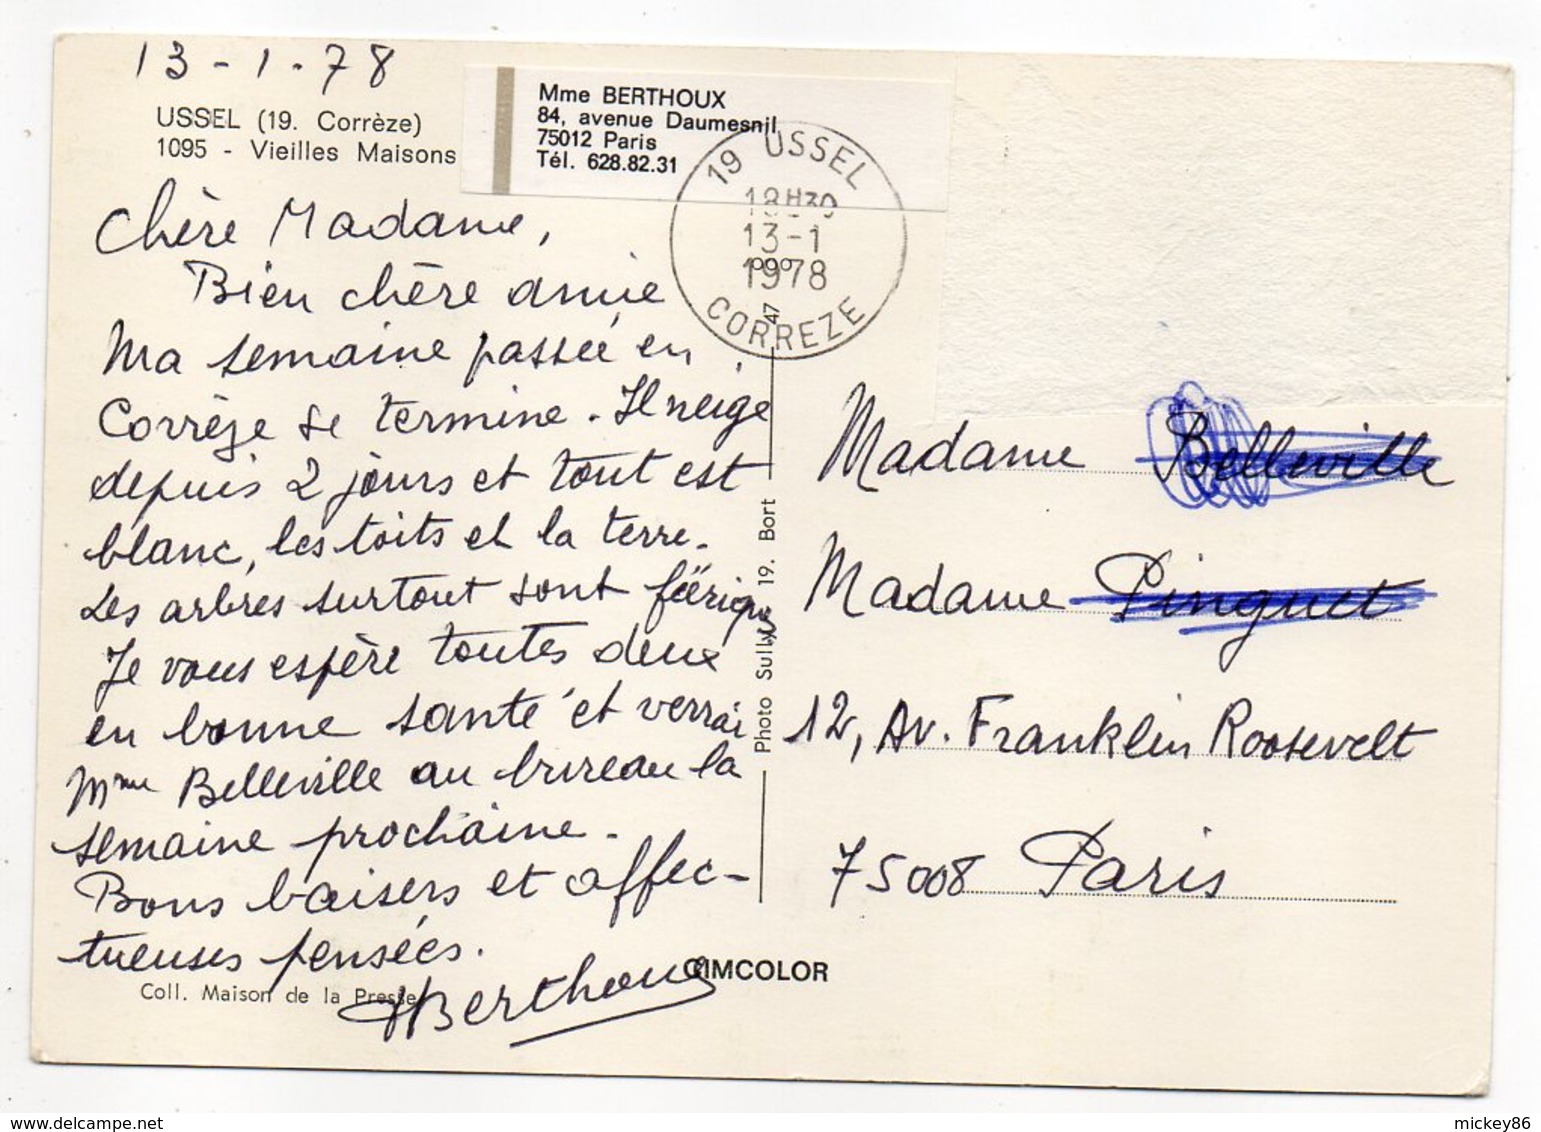 13-1-78
USSEL (19. Corrèze)
1095 - Vieilles Maisons
Mme BERTHOUX
84, avenue Daumesnil
75012 Paris
Tél. 628.82.31
19 USSEL
18H30
13-1
1978
CORREZE
47
Chère Madame,
Bien chère amie
Ma semaine passée en
Corrèze se termine. Il neige
depuis 2 jours et tout est
blanc, les toits et la terre.
Les arbres surtout sont féeriques
Je vous espère toutes deux
en bonne santé et verrai
Mme Belleville au bureau la
semaine prochaine.
Bons baisers et affec-
tueuses pensées.
Berthoux
Coll. Maison de la Presse
Photo Sully 19. Bort
CIMCOLOR
Madame Belleville
Madame Pinguet
12, Av. Franklin Roosevelt
75008 Paris
mickey86